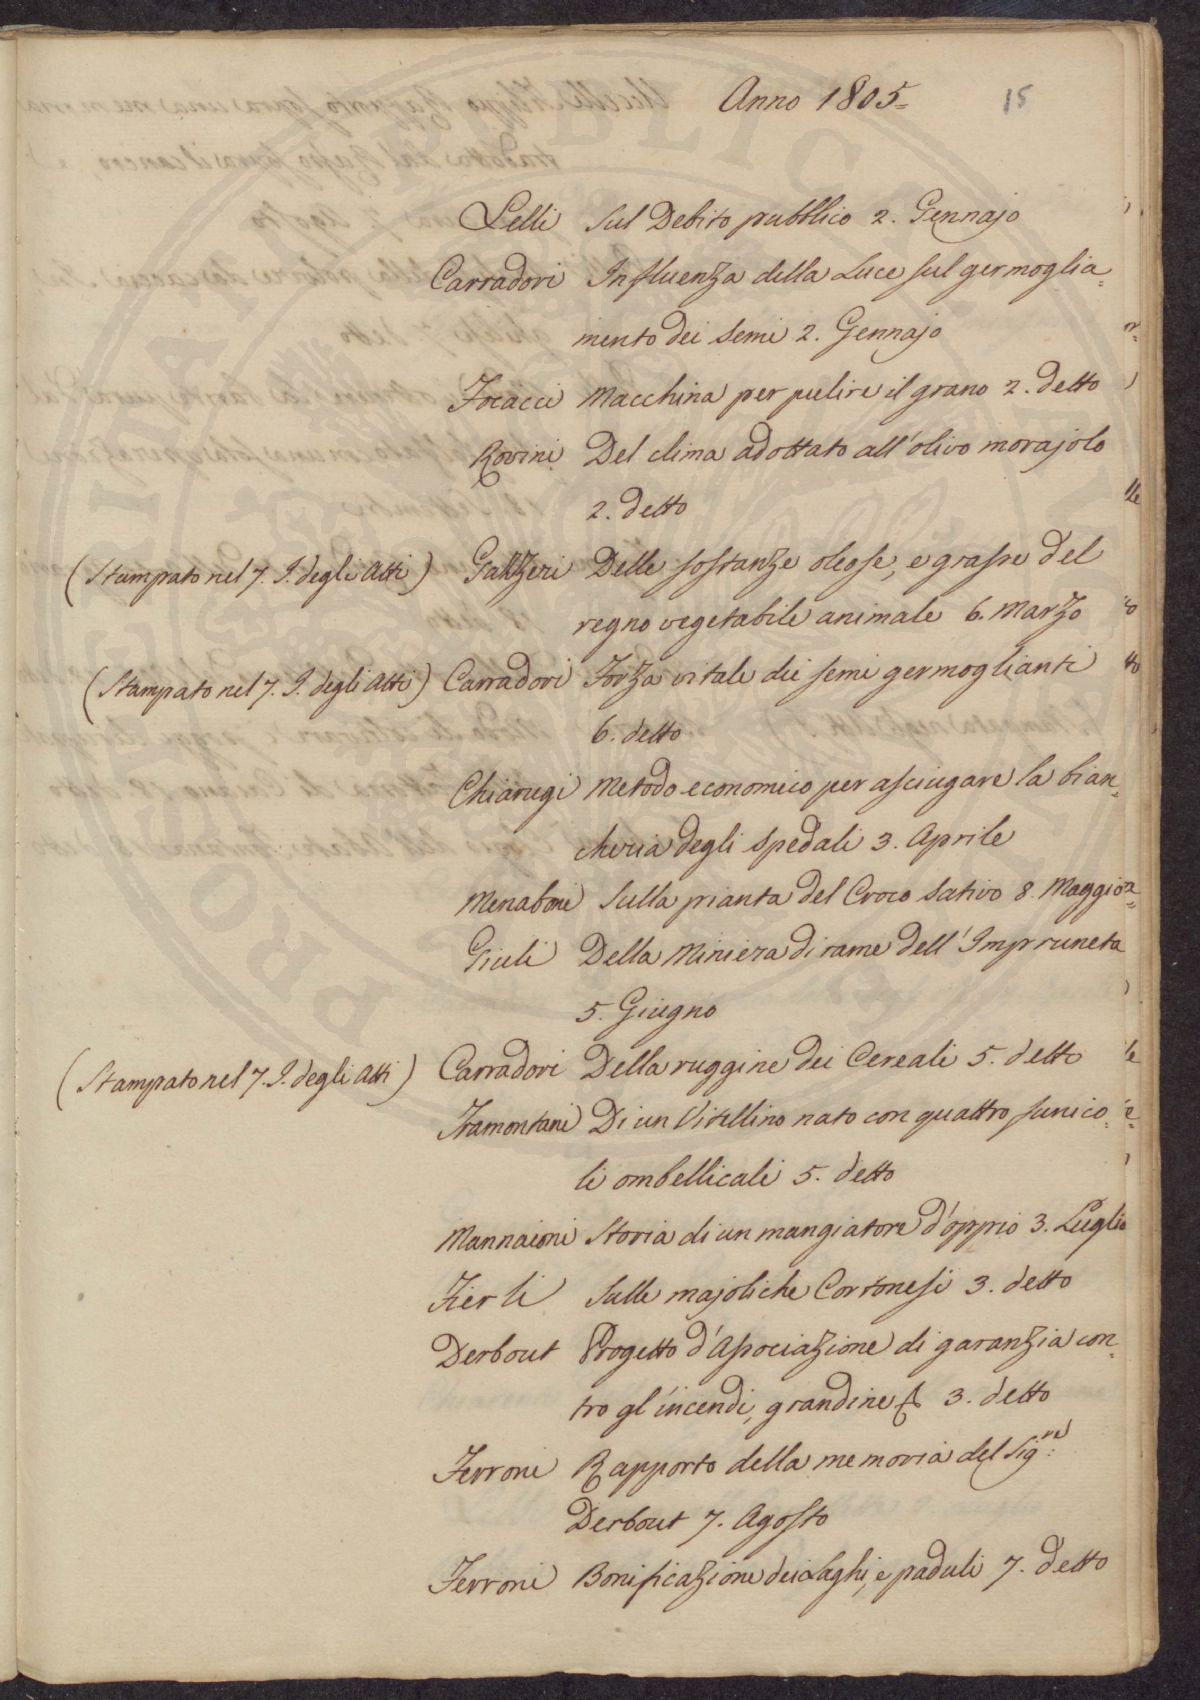 Anno 1805=
15
Lelli Sul Debito pubblico 2. Gennajo
Carradori Influenza della Luce sul germoglia=
mento dei semi 2. Gennajo
Focacci Macchina per pulire il grano 2. detto
Rovini Del clima adottato all'olivo morajolo
2. detto
(Stampato nel 7. T. degli Atti) Gallizeri Delle sostanze oleose, e grasse del
regno vegetabile animale 6. Marzo
(Stampato nel 7. T. degli Atti) Carradori Forza vitale dei semi germoglianti
6. detto
Chiarugi Metodo economico per asciugare la bian=
cheria degli spedali 3. Aprile
Menaboni Sulla pianta del Croco sativo 8. Maggio
Giuli Della Miniera di rame dell'Impruneta
5. Giugno
(Stampato nel 7. T. degli Atti) Carradori Della ruggine dei Cereali 5. detto
Tramontani Di un Vitellino nato con quattro funico=
li ombellicali 5. detto
Mannaioni Storia di un mangiatore d'oppio 3. Luglio
Fierli Sulle majoliche Cortonesi 3. detto
Derbout Progetto d'Associazione di garanzia con=
tro gl'incendi, grandine & 3. detto
Ferroni Rapporto della memoria del Sig.re
Derbout 7. Agosto
Ferroni Bonificazione dei Laghi, e paduli 7. detto